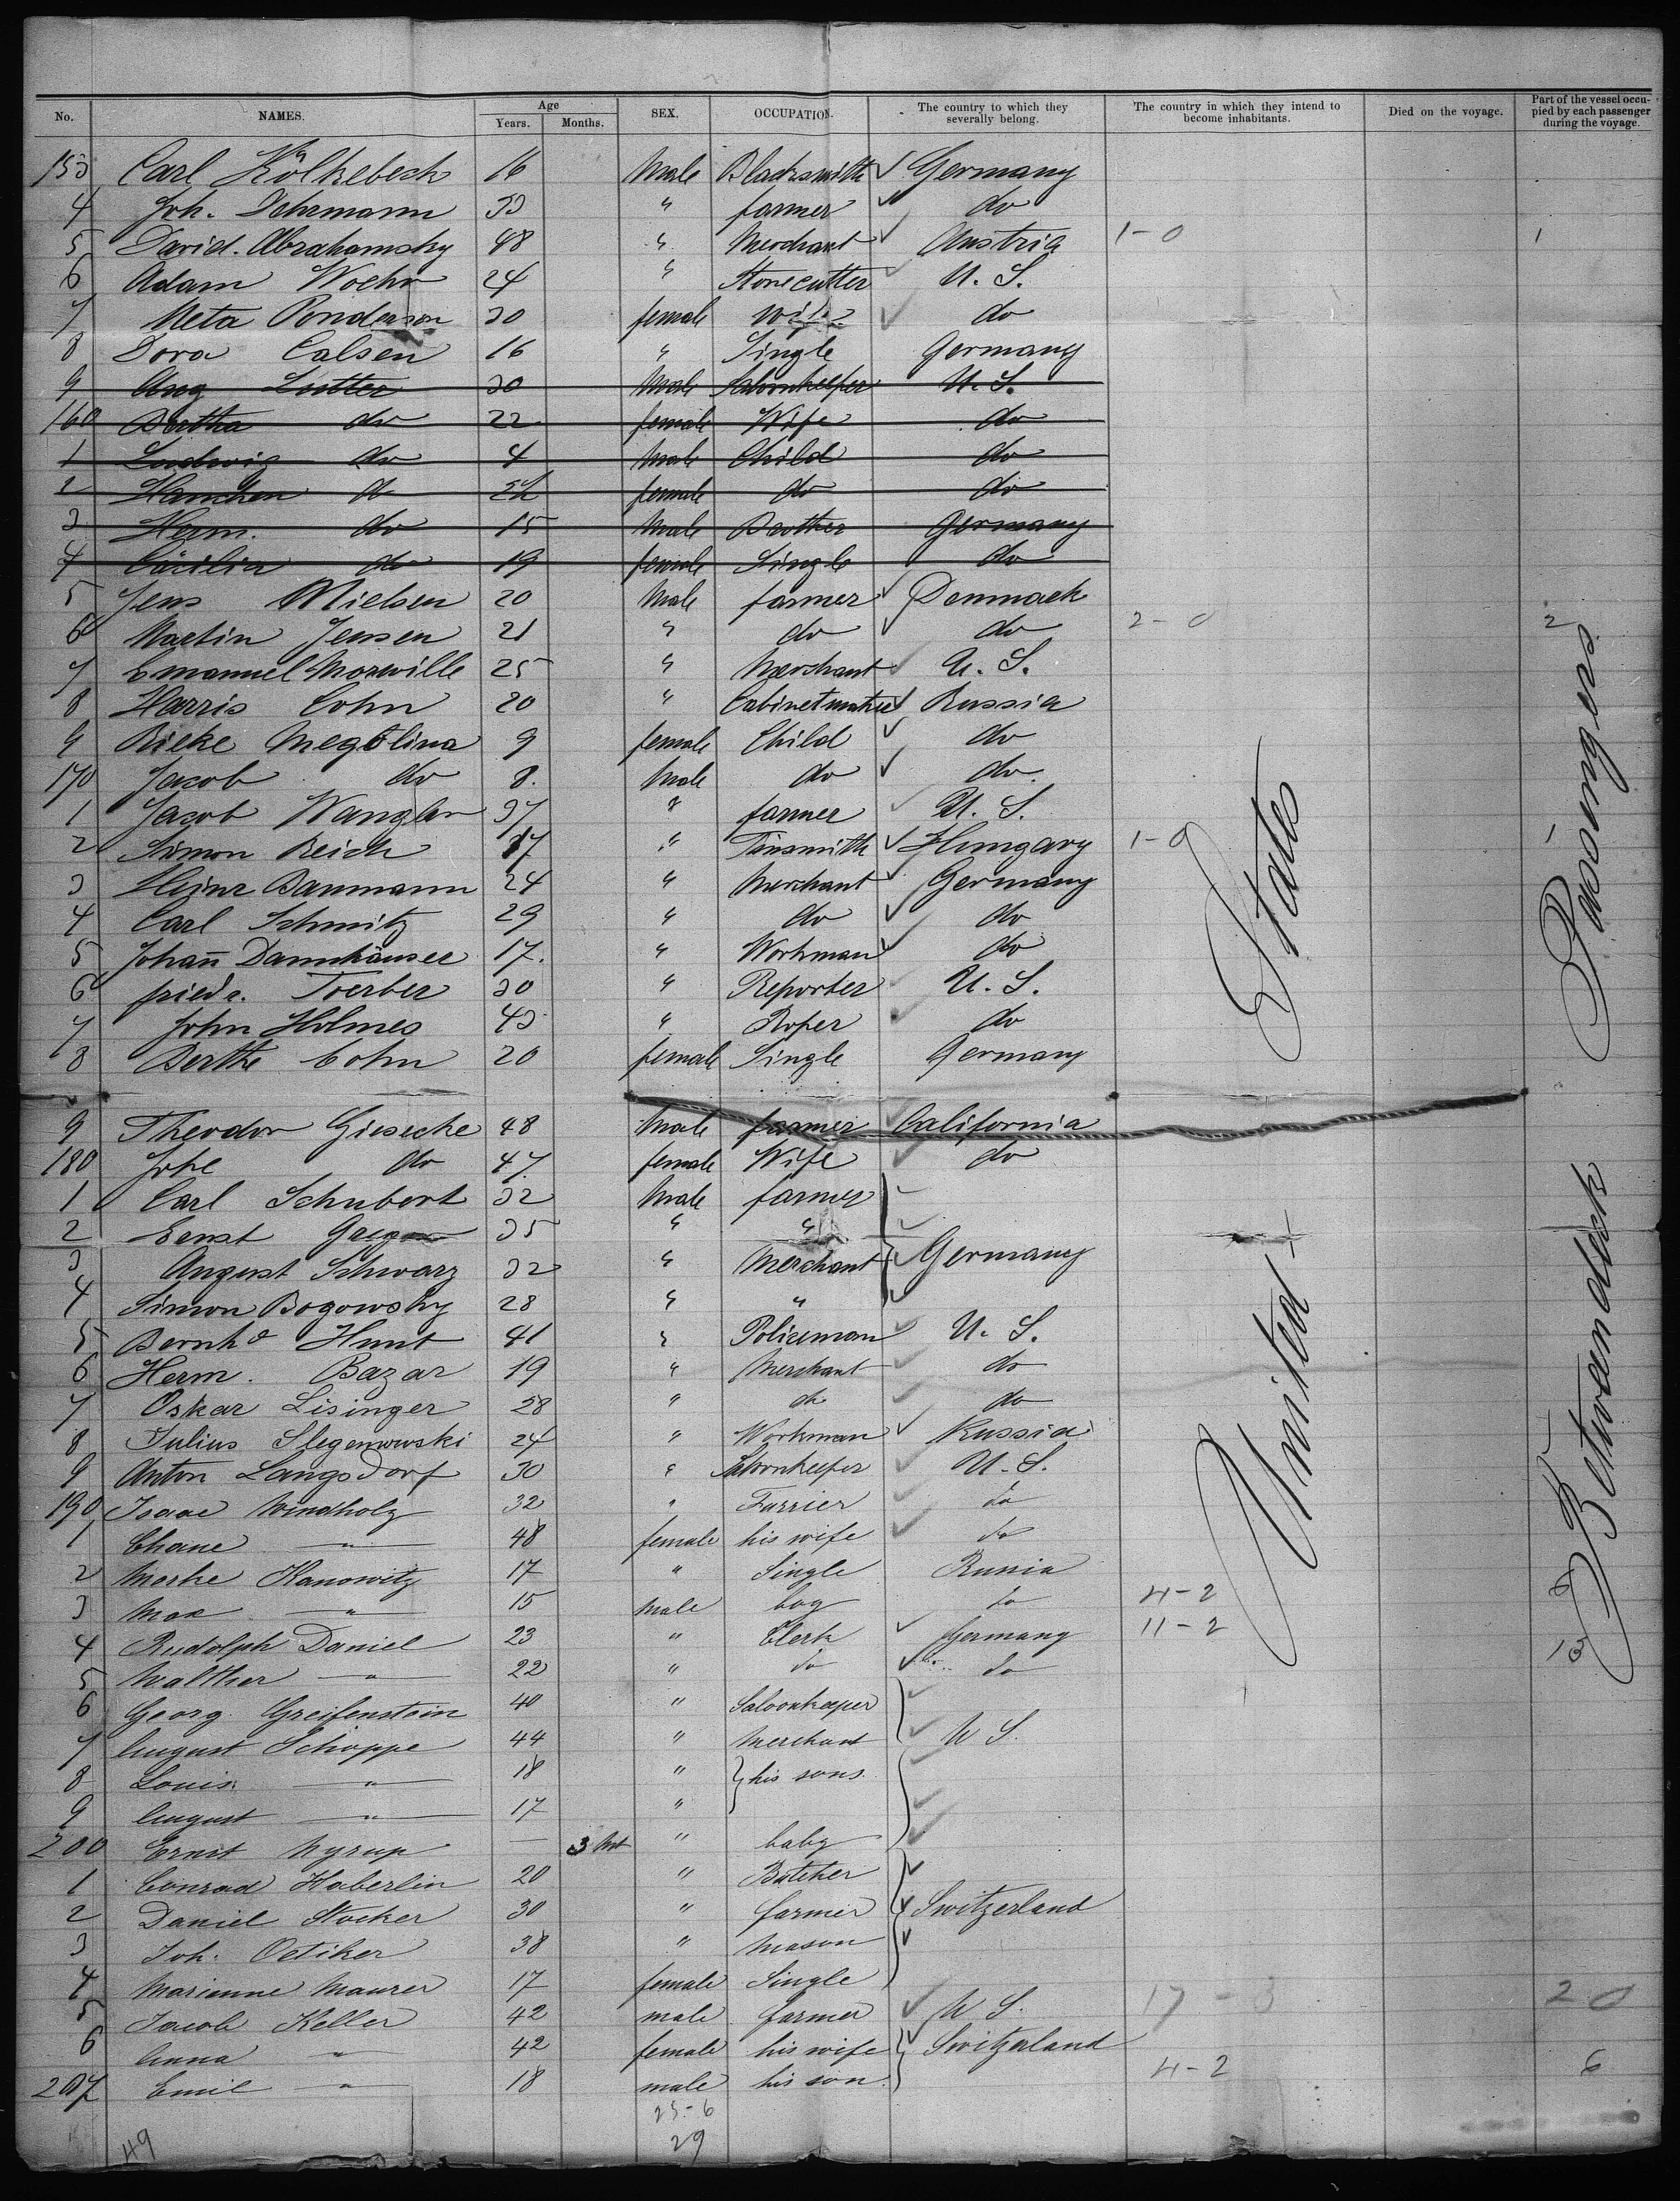 No. NAMES. Age Years. Months. SEX. OCCUPATION. The country to which they severally belong. The country in which they intend to become inhabitants. Died on the voyage. Part of the vessel occupied by each passenger during the voyage.
153 Carl Kölkebeck 16 Male Blacksmith Germany
4 Joh. Dehrmann 33 " farmer do
5 David. Abrahamsky 48 " Merchant Austria 1-0 1
6 Adam Woehr 24 " Stonecutter U. S.
7 Meta Ponderson 30 female wife do
8 Dora Calsen 16 " Single Germany
9 Aug Lutter 30 Male Saloonkeeper U. S.
160 Bertha do 22 female Wife do
1 Ludwig do 4 Male Child do
2 Hanchen do female do do
3 Herm. do 15 Male Brother Germany
4 Cäcilia do 19 female Single do
5 Jens Nielsen 20 Male farmer Denmark
6 Martin Jensen 21 " do do 2-0 2
7 Emanuel Morwille 25 " Merchant U. S.
8 Harris Cohn 20 " Cabinetmaker Russia
9 Rieke Megolina 9 female Child do
170 Jacob do 8. Male do do.
1 Jacob Wangler 37 " farmer U. S.
2 Simon Reich 17 " Tinsmith Hungary 1-0
3 Heinr Baumann 24 " Merchant Germany
4 Carl Schmitz 29 " do do
5 Johan̄ Dannhäuser 17. " Workman do
6 friedr. Toerber 30 " Reporter U. S.
7 John Holmes 43 " Roper do
8 Berthe Cohn 20 female Single Germany
9 Theodor Giesecke 48 Male farmer California
180 Johe do 47. female Wife do
1 Carl Schubert 32 Male farmer
2 Ernst Gregor 35 " "
3 August Schwarz 32 " Merchant Germany
4 Simon Bogowsky 28 " "
5 Bernhd Hunt 41 " Policeman U. S.
6 Herm. Bazar 19 " Merchant do
7 Oskar Lisinger 28 " do do
8 Julius Slegenwski 24 " Workman Russia
9 Anton Langsdorf 30 " Saloonkeeper U. S.
190 Isaac Windholz 32 " Furrier do
1 Chane " 48 female his wife do
2 Merke Kanowitz 17 " Single Russia
3 Max " 15 male boy do 4-2 6
4 Rudolph Daniel 23 " Clerk Germany 11-2 13
5 Walther " 22 " do do
6 Georg Greifenstein 40 " Saloonkeeper
7 August Schoppe 44 " Merchant U S.
8 Louis " 18 " his sons
9 August " 17 "
200 Ernst Nyrup — 3 Mt " baby
1 Conrad Haberlin 20 " Butcher
2 Daniel Stocker 30 " farmer Switzerland
3 Joh. Oetiker 38 " mason
4 Marianne Maurer 17 female Single
5 Jacob Keller 42 male farmer U S. 17-3 20
6 Anna " 42 female his wife Switzerland
207 Emil " 18 male his son 4-2 6
23-6
49 29
United States
Betweendeck Passengers